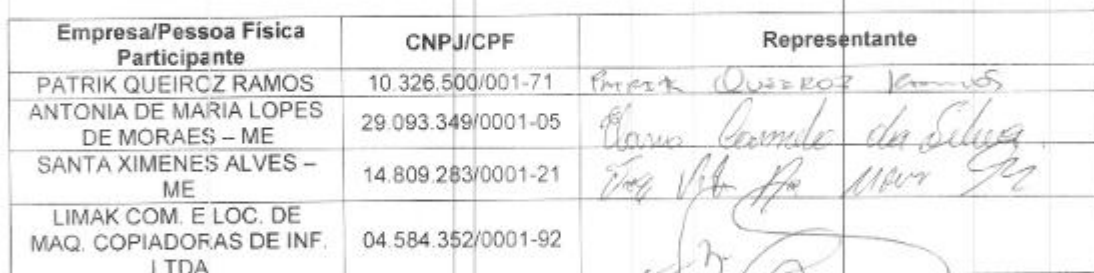 Empresa/Pessoa Física
Participante
CNPJ/CPF
Representante
PATRIK QUEIRCZ RAMOS
10.326.500/001-71
PATRIK QUEIROZ Ramos
ANTONIA DE MARIA LOPES
DE MORAES – ME
29.093.349/0001-05
da Silva
SANTA XIMENES ALVES –
ME
14.809.283/0001-21
LIMAK COM. E LOC. DE
MAQ. COPIADORAS DE INF.
LTDA
04.584.352/0001-92